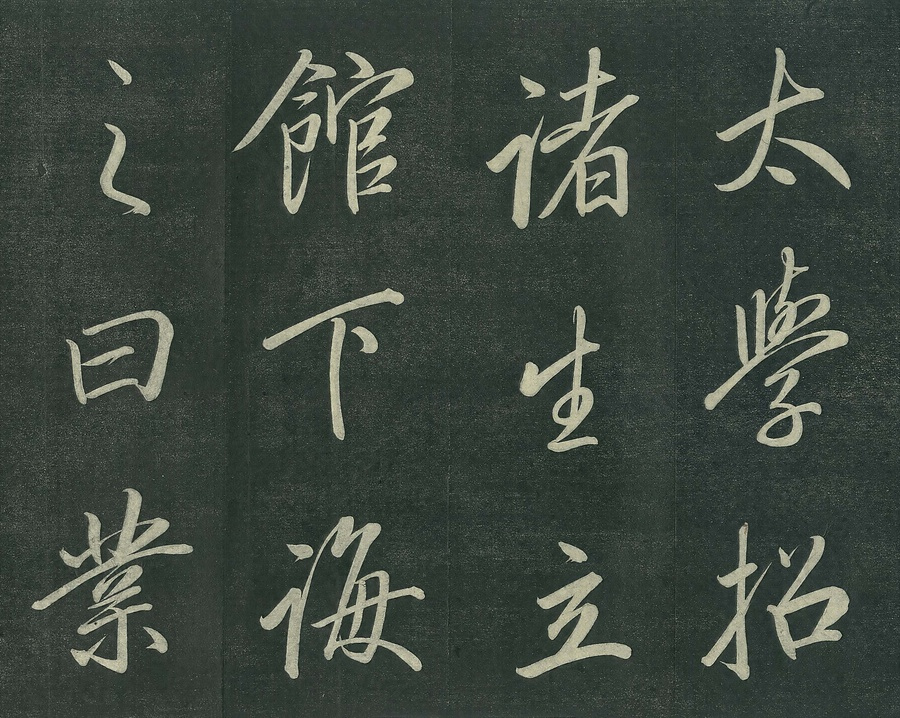 太學招
諸生立
館下誨
之曰業